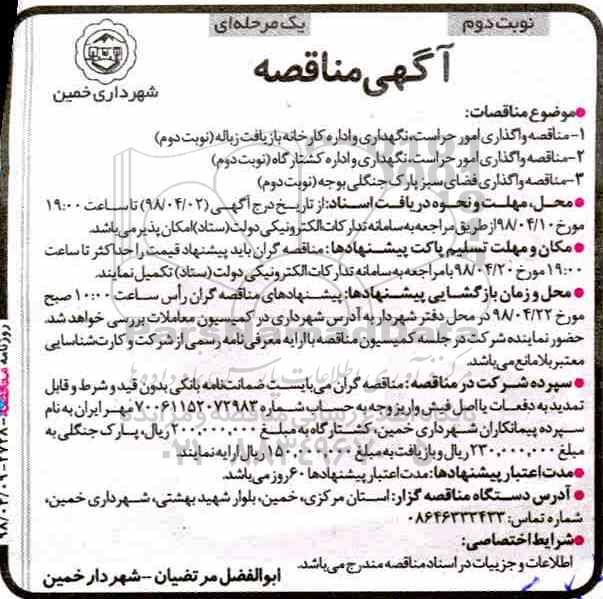 نوبت دوم
یک مرحله‌ای
آگهی مناقصه
شهرداری خمین
●موضوع مناقصات:
۱-مناقصه واگذاری امور حراست، نگهداری و اداره کارخانه بازیافت زباله (نوبت دوم)
۲-مناقصه واگذاری امور حراست، نگهداری و اداره کشتارگاه (نوبت دوم)
۳-مناقصه واگذاری فضای سبز پارک جنگلی بوجه (نوبت دوم)
●محل، مهلت و نحوه دریافت اسناد: از تاریخ درج آگهی (۹۸/۰۴/۰۲) تا ساعت ۱۹:۰۰
مورخ ۹۸/۰۴/۱۰ از طریق مراجعه به سامانه تدارکات الکترونیکی دولت (ستاد) امکان پذیر می‌باشد.
●مکان و مهلت تسلیم پاکت پیشنهادها: مناقصه گران باید پیشنهاد قیمت را حداکثر تا ساعت
۱۹:۰۰ مورخ ۹۸/۰۴/۲۰ با مراجعه به سامانه تدارکات الکترونیکی دولت (ستاد) تکمیل نمایند.
●محل و زمان بازگشایی پیشنهادها: پیشنهادهای مناقصه گران رأس ساعت ۱۰:۰۰ صبح
مورخ ۹۸/۰۴/۲۲ در محل دفتر شهردار به آدرس شهرداری در کمیسیون معاملات بررسی خواهد شد.
حضور نماینده شرکت در جلسه کمیسیون مناقصه با ارایه معرفی نامه رسمی از شرکت و کارت شناسایی
معتبر بلامانع می‌باشد.
●سپرده شرکت در مناقصه: مناقصه گران می‌بایست ضمانت‌نامه بانکی بدون قید و شرط و قابل
تمدید به دفعات یا اصل فیش واریز وجه به حساب شماره ۷۰۰۶۱۱۵۲۰۷۲۹۸۳ مهر ایران به نام
سپرده پیمانکاران شهرداری خمین، کشتارگاه به مبلغ ۲۰۰,۰۰۰,۰۰۰ ریال، پارک جنگلی به
مبلغ ۲۳۰,۰۰۰,۰۰۰ ریال و بازیافت به مبلغ ۱۵۰,۰۰۰,۰۰۰ ریال ارایه نمایند.
●مدت اعتبار پیشنهادها: مدت اعتبار پیشنهادها ۶۰ روز می‌باشد.
●آدرس دستگاه مناقصه گزار: استان مرکزی، خمین، بلوار شهید بهشتی، شهرداری خمین،
شماره تماس: ۰۸۶۴۶۳۳۳۴۳۳
●شرایط اختصاصی:
اطلاعات و جزییات در اسناد مناقصه مندرج می‌باشد.
ابوالفضل مرتضیان - شهردار خمین
ParsNamadData